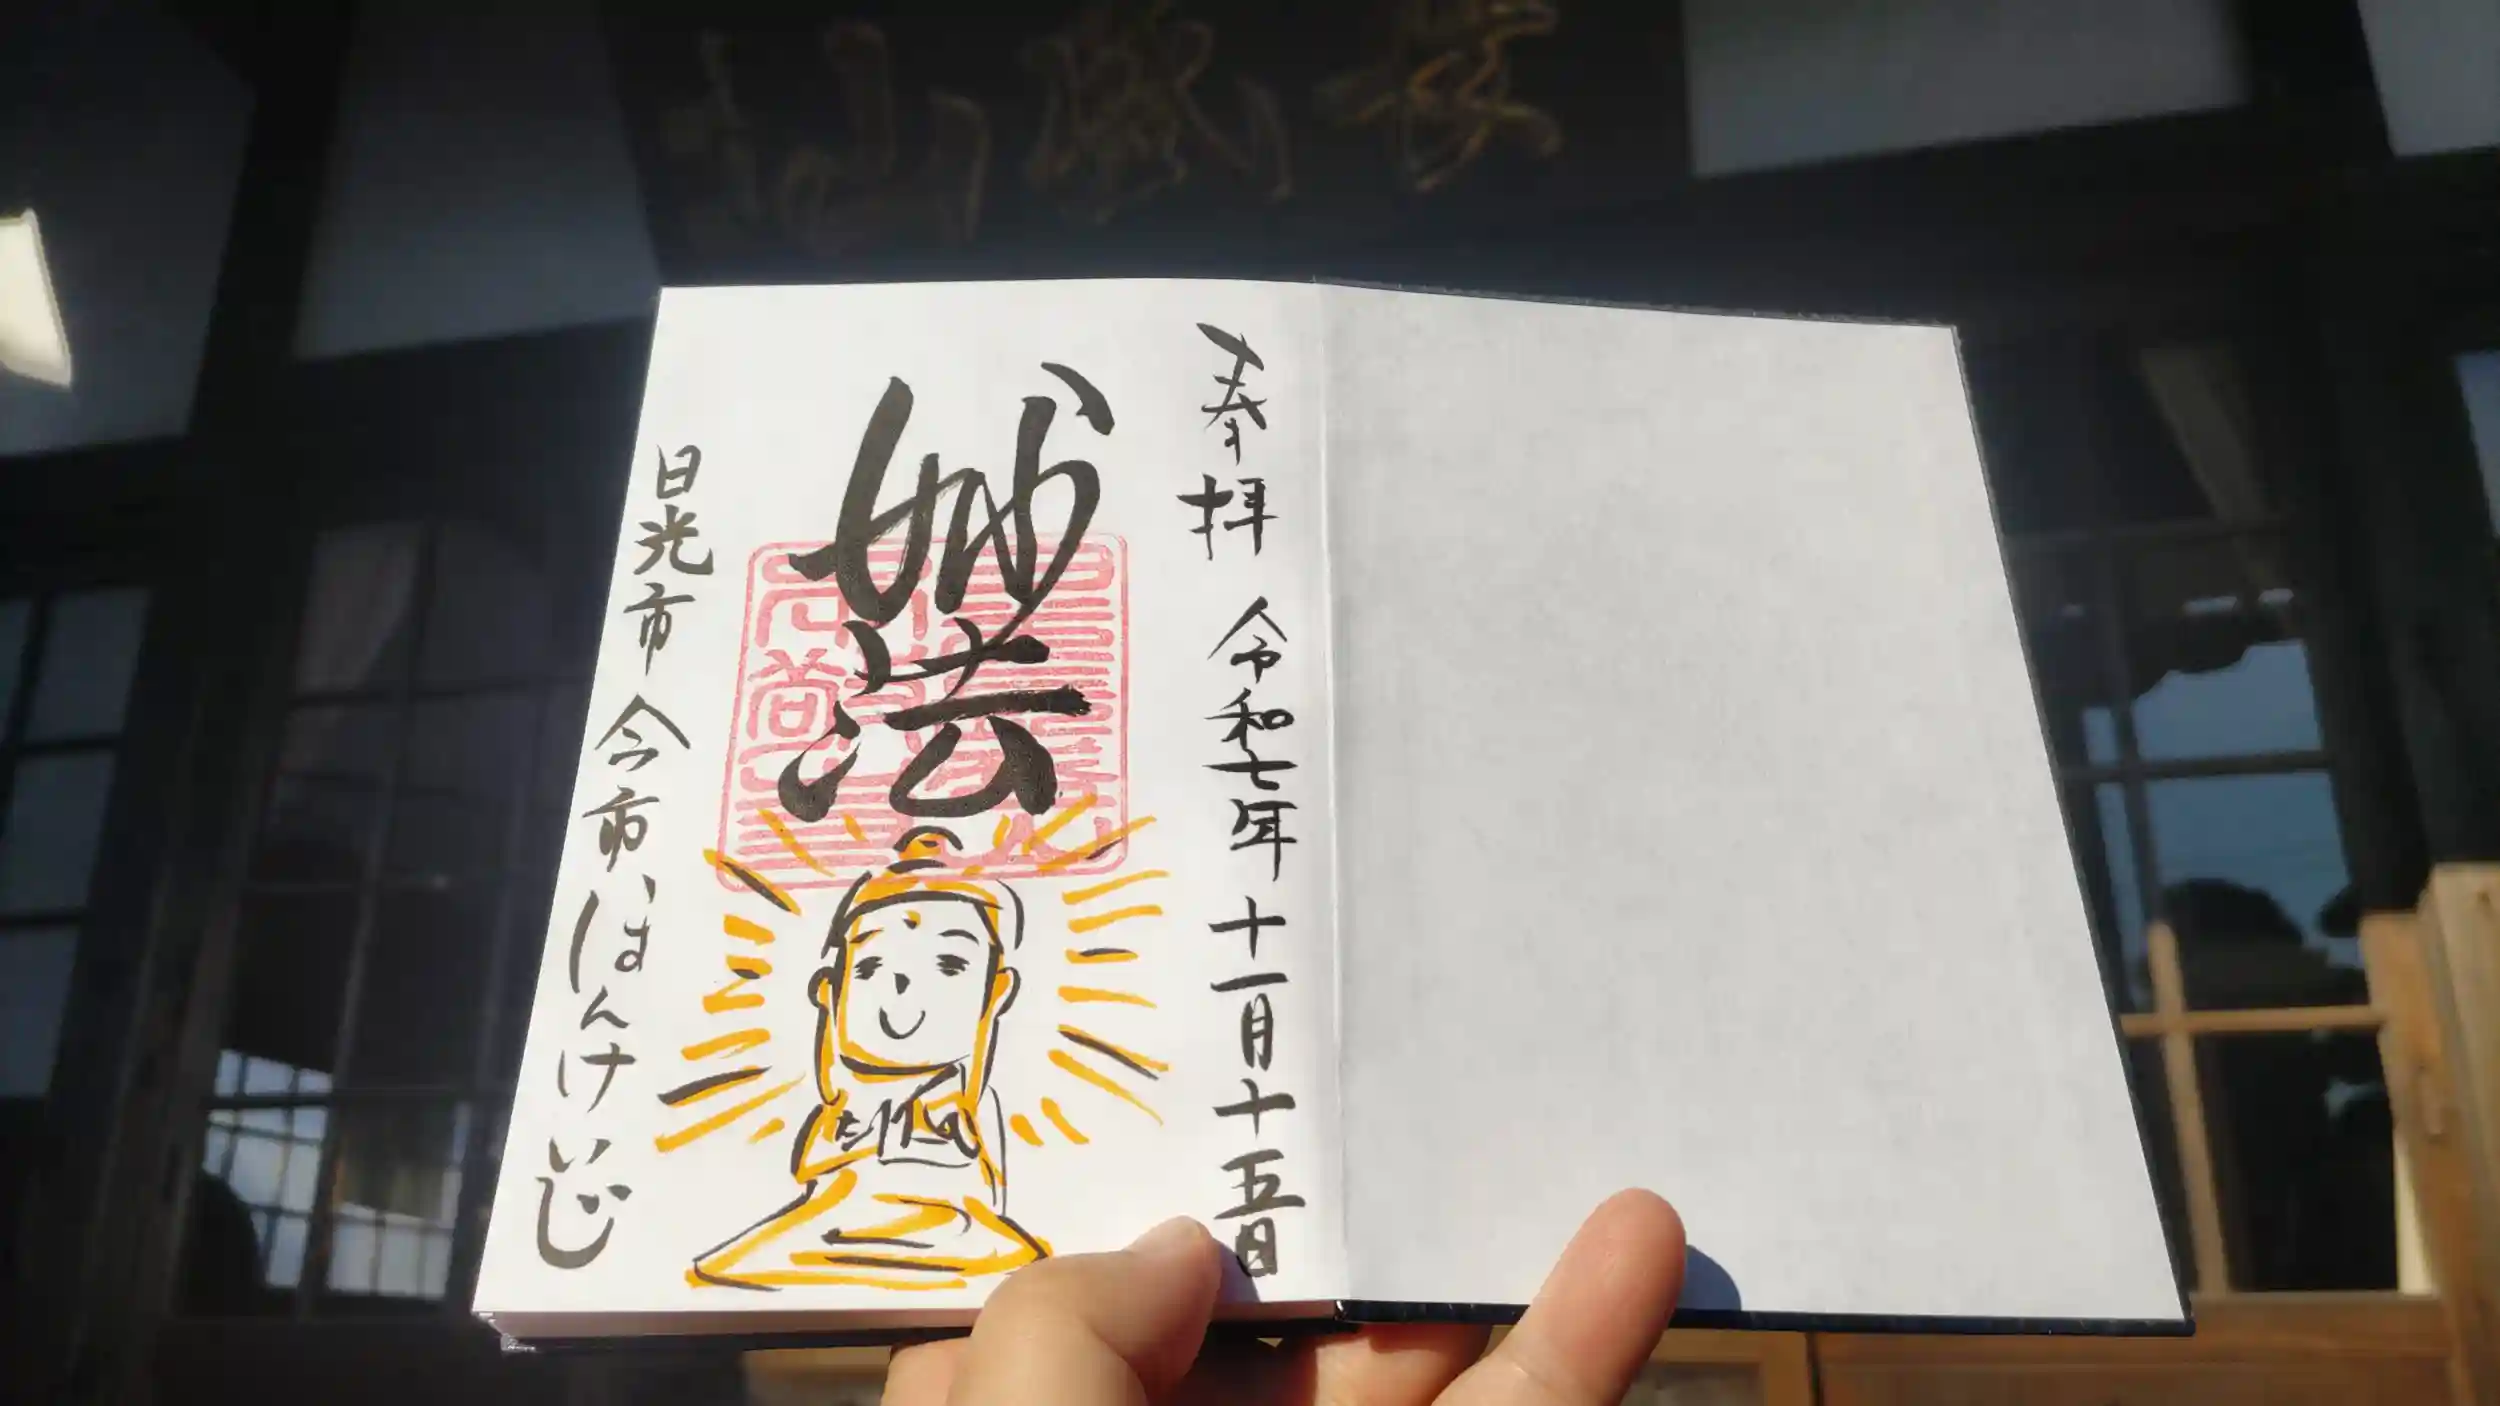 奉拝 令和七年十一月十五日
妙法
日光市今市ほんけいじ